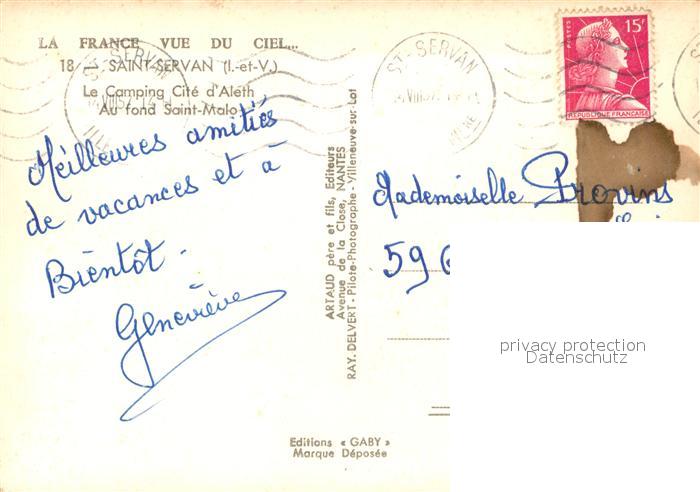 LA FRANCE VUE DU CIEL...
18 - SAINT-SERVAN (I.-et-V.)
Le Camping Cité d'Aleth
Au fond Saint-Malo
Meilleures amitiés
de vacances et à
Bientôt.
Geneviève
ARTAUD père et fils, Editeurs
Avenue de la Close, NANTES
RAY. DELVERT - Pilote-Photographe - Villeneuve-sur-Lot
Editions « GABY »
Marque Déposée
ST-SERVAN
ST-SERVAN
POSTES
15F
REPUBLIQUE FRANÇAISE
Mademoiselle Provins
59
privacy protection
Datenschutz